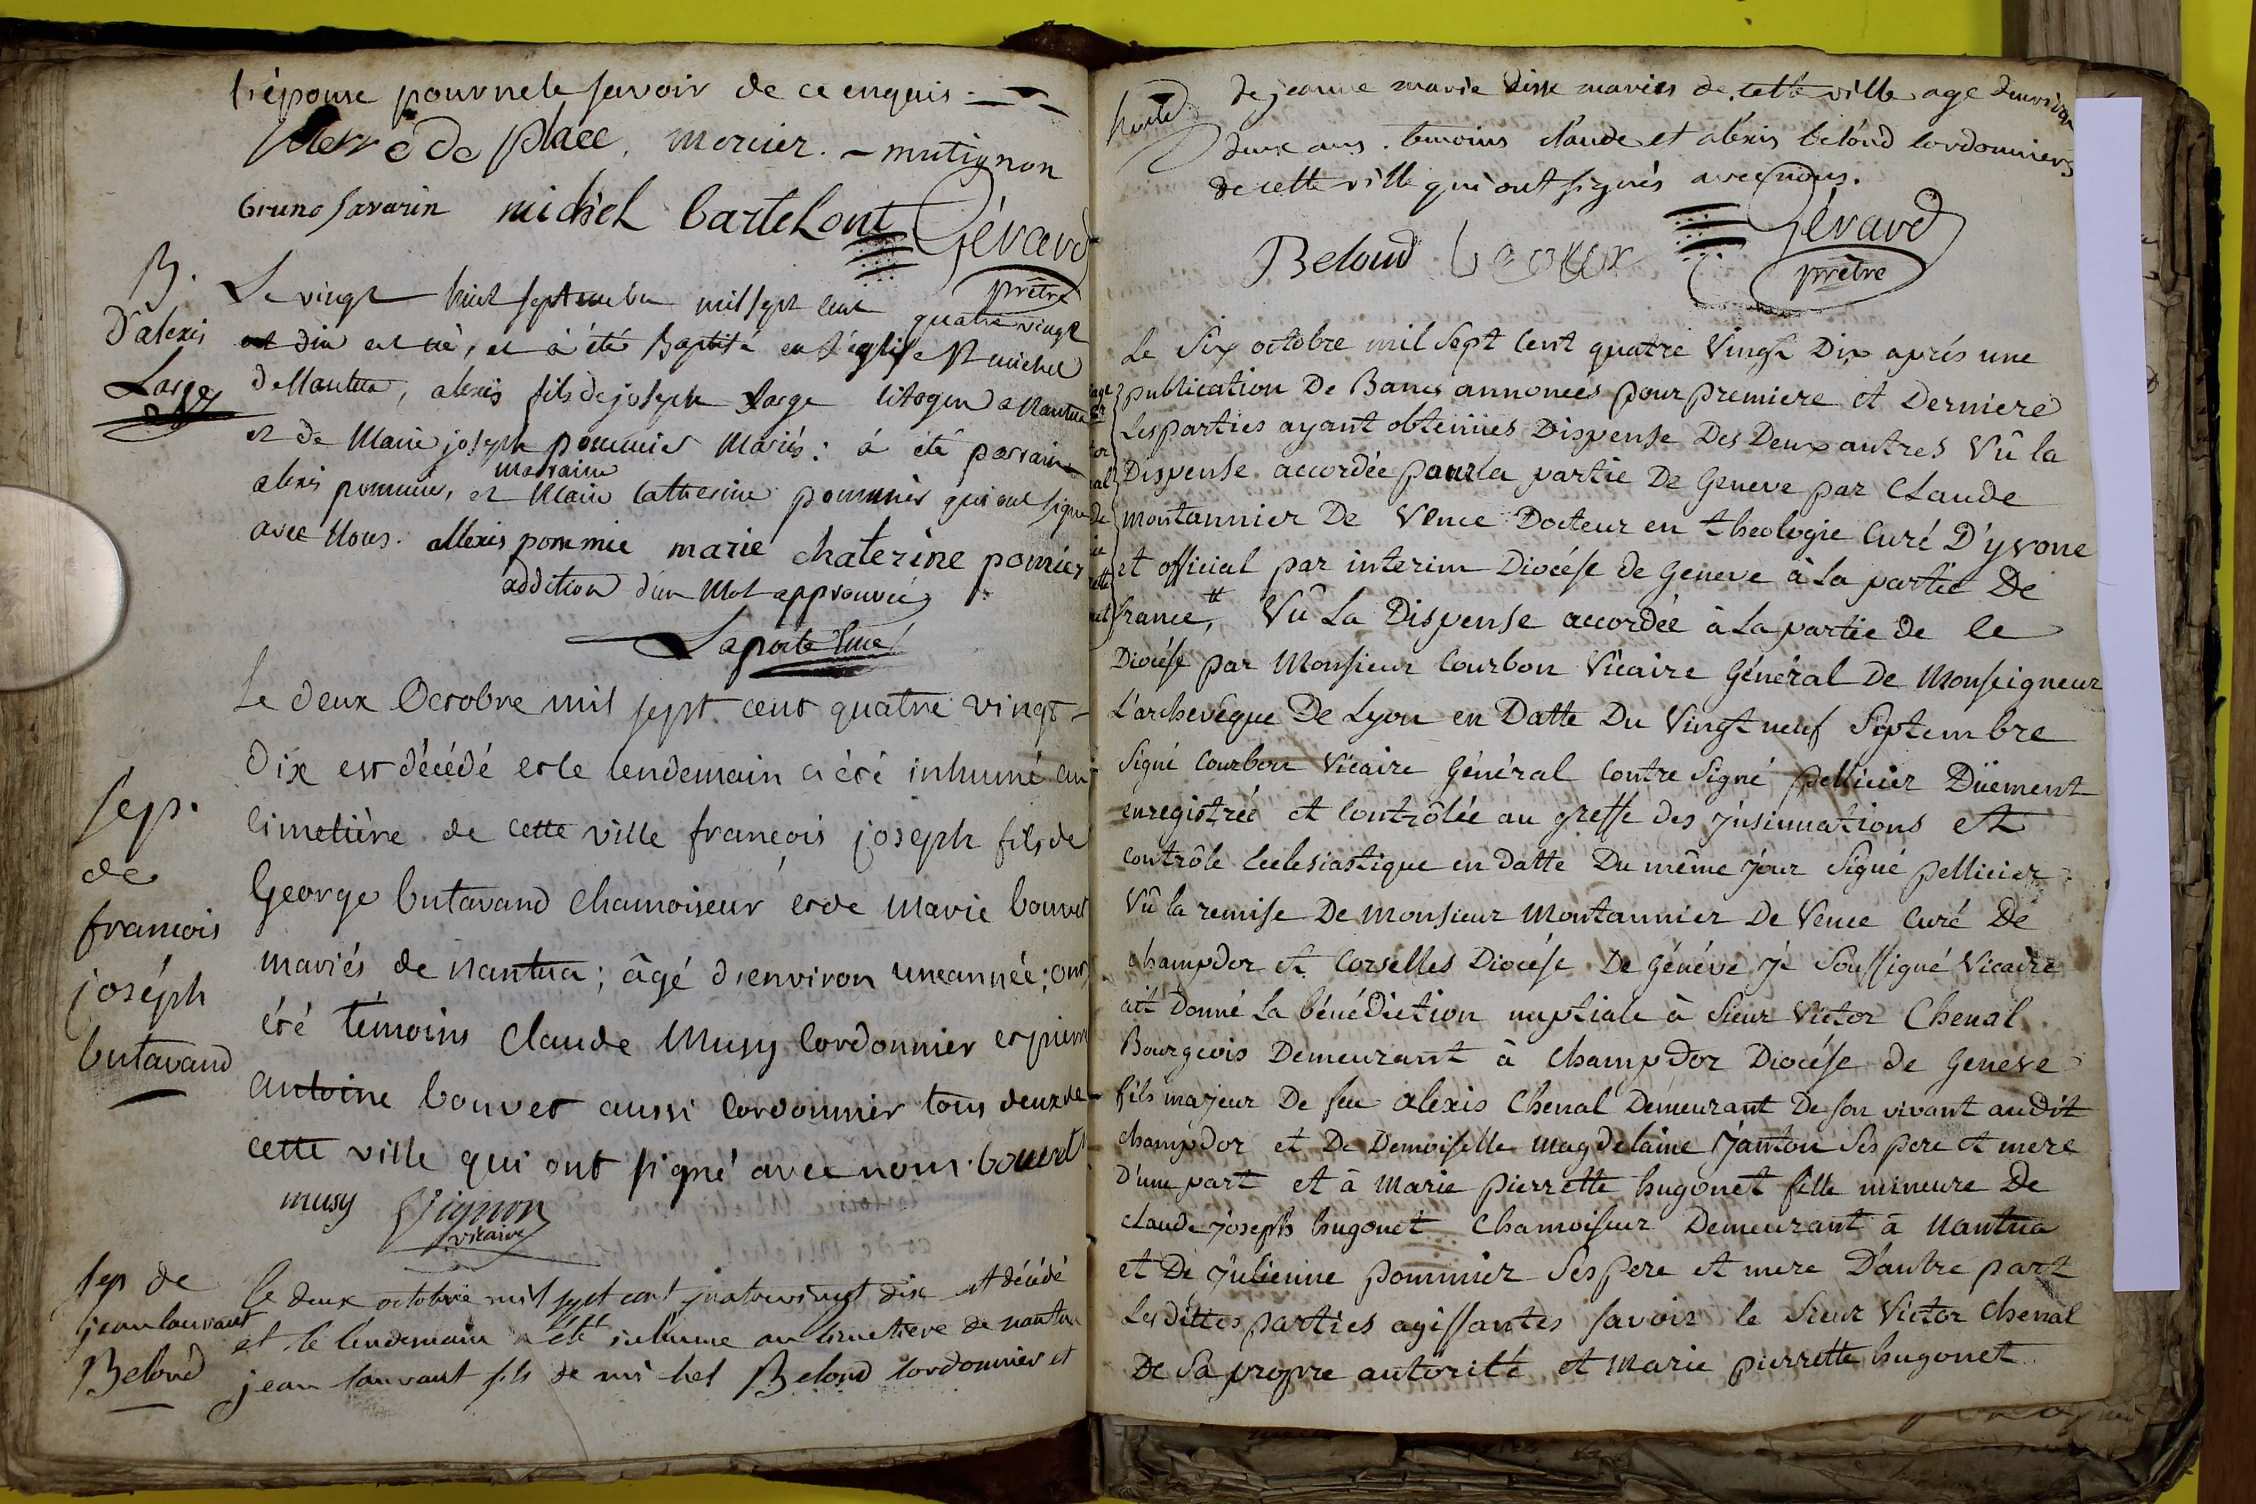 l'épouse pour ne le savoir de ce enquis
De place. mercier. mutignon
bruno savarin michel bartelont Gérard
prêtre
B.
D'alexis
Large
Le vingt huit septembre mil sept cent quatre vingt
dix est né, et à été Baptisé en l'église St michel
de Nantua, alexis fils de joseph Large citoyen de Nantua
et de Marie joseph pommier Mariés: à été parrain
marraine
alexis pommier, et Marie Catherine pommier qui ont signé
avec Nous. allexis pommie marie chaterine pomier
addition d'un Mot approuvée
Laporte Curé
Sep.
de
francois
joséph
butavand
Le deux Octobre mil sept cent quatre vingt
dix est décédé et le lendemain a été inhumé au
cimetière de cette ville françois joseph fils de
George butavand chamoiseur et de Marie bouvet
mariés de nantua; âgé d'environ une année; ont
été témoins Claude Musy Cordonnier et pierre
antoine bouvet aussi Cordonnier tous deux de
cette ville qui ont signé avec nous. bouvet
musy Vignon
vicaire
Sep de
jean laurant
Belond
Le deux octobre mil sept cent quatrevingt dix et décédé
et le lendemain a été inhume au cimetiere de nantua
jean laurant fils de michel Belond cordonnier et
de jeanne marie disse mariés de cette ville age d'environ
deux ans. temoins claude et aléxis belond cordonniers
de cette ville qui ont signés avec nous.
Beloud Gérard
prêtre
Le Six octobre mil Sept Cent quatre Vingt Dix aprés une
publication De Bancs annoncés pour premiere et Derniere
Les parties ayant obtenües Dispense Des Deux autres Vû la
Dispense accordée pour la partie De Geneve par Claude
montannier De Vence Docteur en theologie Curé D'yvone
et official par interim Diocése de Geneve à La partie De
france, Vû La Dispense accordée à La partie de ce
Diocése par Monsieur Courbon Vicaire Général De Monseigneur
L'archevêque De Lyon en Datte Du Vingt neuf Septembre
Signé Courbon Vicaire Général Contre Signé pellicier Düement
enregistrée et Contrôlée au greffe des Jnsinuations et
Contrôle Ecclesiastique en Datte Du même jour Signé pellicier
Vû la remise De monsieur Montannier De Vence Curé De
champdor et Corselles Diocése De Généve Je Soussigné Vicaire
ait Donné La bénédiction nuptiale à Sieur Victor Chenal
Bourgeois Demeurant à Champdor Diocése de Geneve
fils majeur De feu alexis Chenal Demeurant De son vivant audit
champdor et De Demoiselle magdelaine Jantou Ses pere et mere
D'une part et à Marie pierrette hugonet fille mineure De
Claude joseph hugonet Chamoiseur Demeurant à Nantua
et De Julienne pommier Ses pere et mere D'autre part
Les dittes parties agissantes savoir le Sieur Victor Chenal
De Sa propre autorité et Marie pierrette hugonet